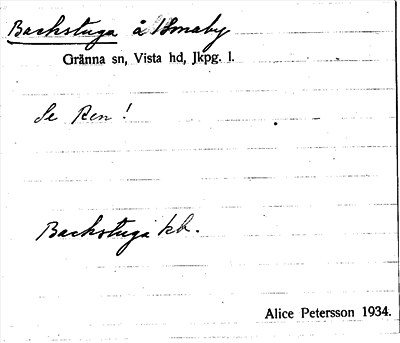 Backstuga å Smaby
Gränna sn, Vista hd, Jkpg. l.
Se Ren!
Backstuga kb.
Alice Petersson 1934.